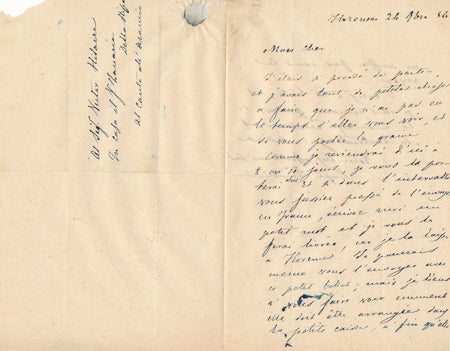 Florence 24 9bre 56
Mon cher
J'étais si pressé de partir,
et j'avais tant de petites choses
à faire, que je n'ai pas eu
le temps d'aller vous voir, et
de vous porter la
Comme je reviendrai d'ici à
8 ou 10 jours, je vous la por
terai alors. Et si dans l'intervalle
vous fussiez pressé de l'envoyer
en France, écrivez moi un
petit mot et je vous la
ferai livrer, car je la laisse
à Florence. Je pourrais
même vous l'envoyer avec
ce petit billet; mais je tiens
à vous faire voir comment
elle doit être arrangée dans
la petite caisse, à fin qu'elle
Al Sigr Victor
In casa
della
Al Canto